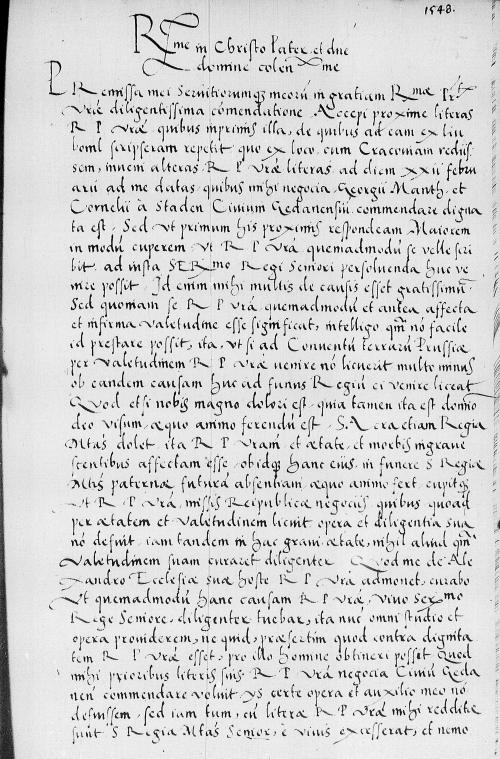 1548.
R me in Christo Pater et dne
domine colen me
PRemissa mei Servitiorumq; meorũ in gratiam Rmae P. 
Vrae diligentissima cõmendatione. Accepi proxime literas
R P Vrae quibus inprimis illa, de quibus ad eam ex
 scripseram repetit quo ex loco, cum Cracoviam rediis
sem, inveni alteras R P Vrae literas ad diem XXII febru
arii ad me datas, quibus mihi negocia Georgii Manth, et
Cornelii à Staden Civium Gedanensiũ commendare digna
ta est. Sed ut primum his proximis respondeam Maiorem
in modũ cuperem ut R P Vra quemadmodũ se velle scri
bit, ad iusta SERmo Regi Seniori persolvenda huc ve
nire possit. Id enim mihi multis de causis esset gratissimũ
Sed quoniam se R P Vra quemadmodũ et antea affecta
et infirma valetudine esse significat, intelligo qm nõ facile
id prestare possit, ita, ut si ad Conventũ terrarũ Prussiae
per valetudinem R P Vrae venire nõ licuerit multo minus
ob eandem causam huc ad funus Regiũ ei venire liceat
Quod etsi nobis magno dolori est, quia tamen ita est domino
deo visum, aequo animo ferendũ est. SACra etiam Regia
Mtas dolet, ita R P Vram et aetate, et morbis ingrave
scentibus affectam esse, obidq; hanc eius in funere S Regiae
Mtis paternae futurã absentiam aequo animo fert, cupitq;
ut R P Vra, missis Reipublicae negociis quibus quoad
per aetatem et valetudinem licuit opera et diligentia sua
nõ defuit, iam tandem in hac gravi aetate, nihil aliud qm
valetudinem suam curaret diligenter. Quod me de Ale
xandro Ecclesiae suae hoste R P Vra admonet, curabo
ut quemadmodũ hanc causam R P Vrae, vivo Sermo
Rege Seniore, diligenter tuebar, ita nuc omni studio et
opera providerem, ne quid, praesertim quod contra dignita
tem R P Vrae esset, pro illo homine obtineri possit. Quod
mihi prioribus literis suis R P Vra negocia Civiũ Geda
nen commendare voluit, ys certe opera et auxilio meo nõ
defuissem, sed iam tum, cũ literae R P Vrae mihi redditae
sunt S Regia Mtas Senior, è vivis excesserat, et nemo